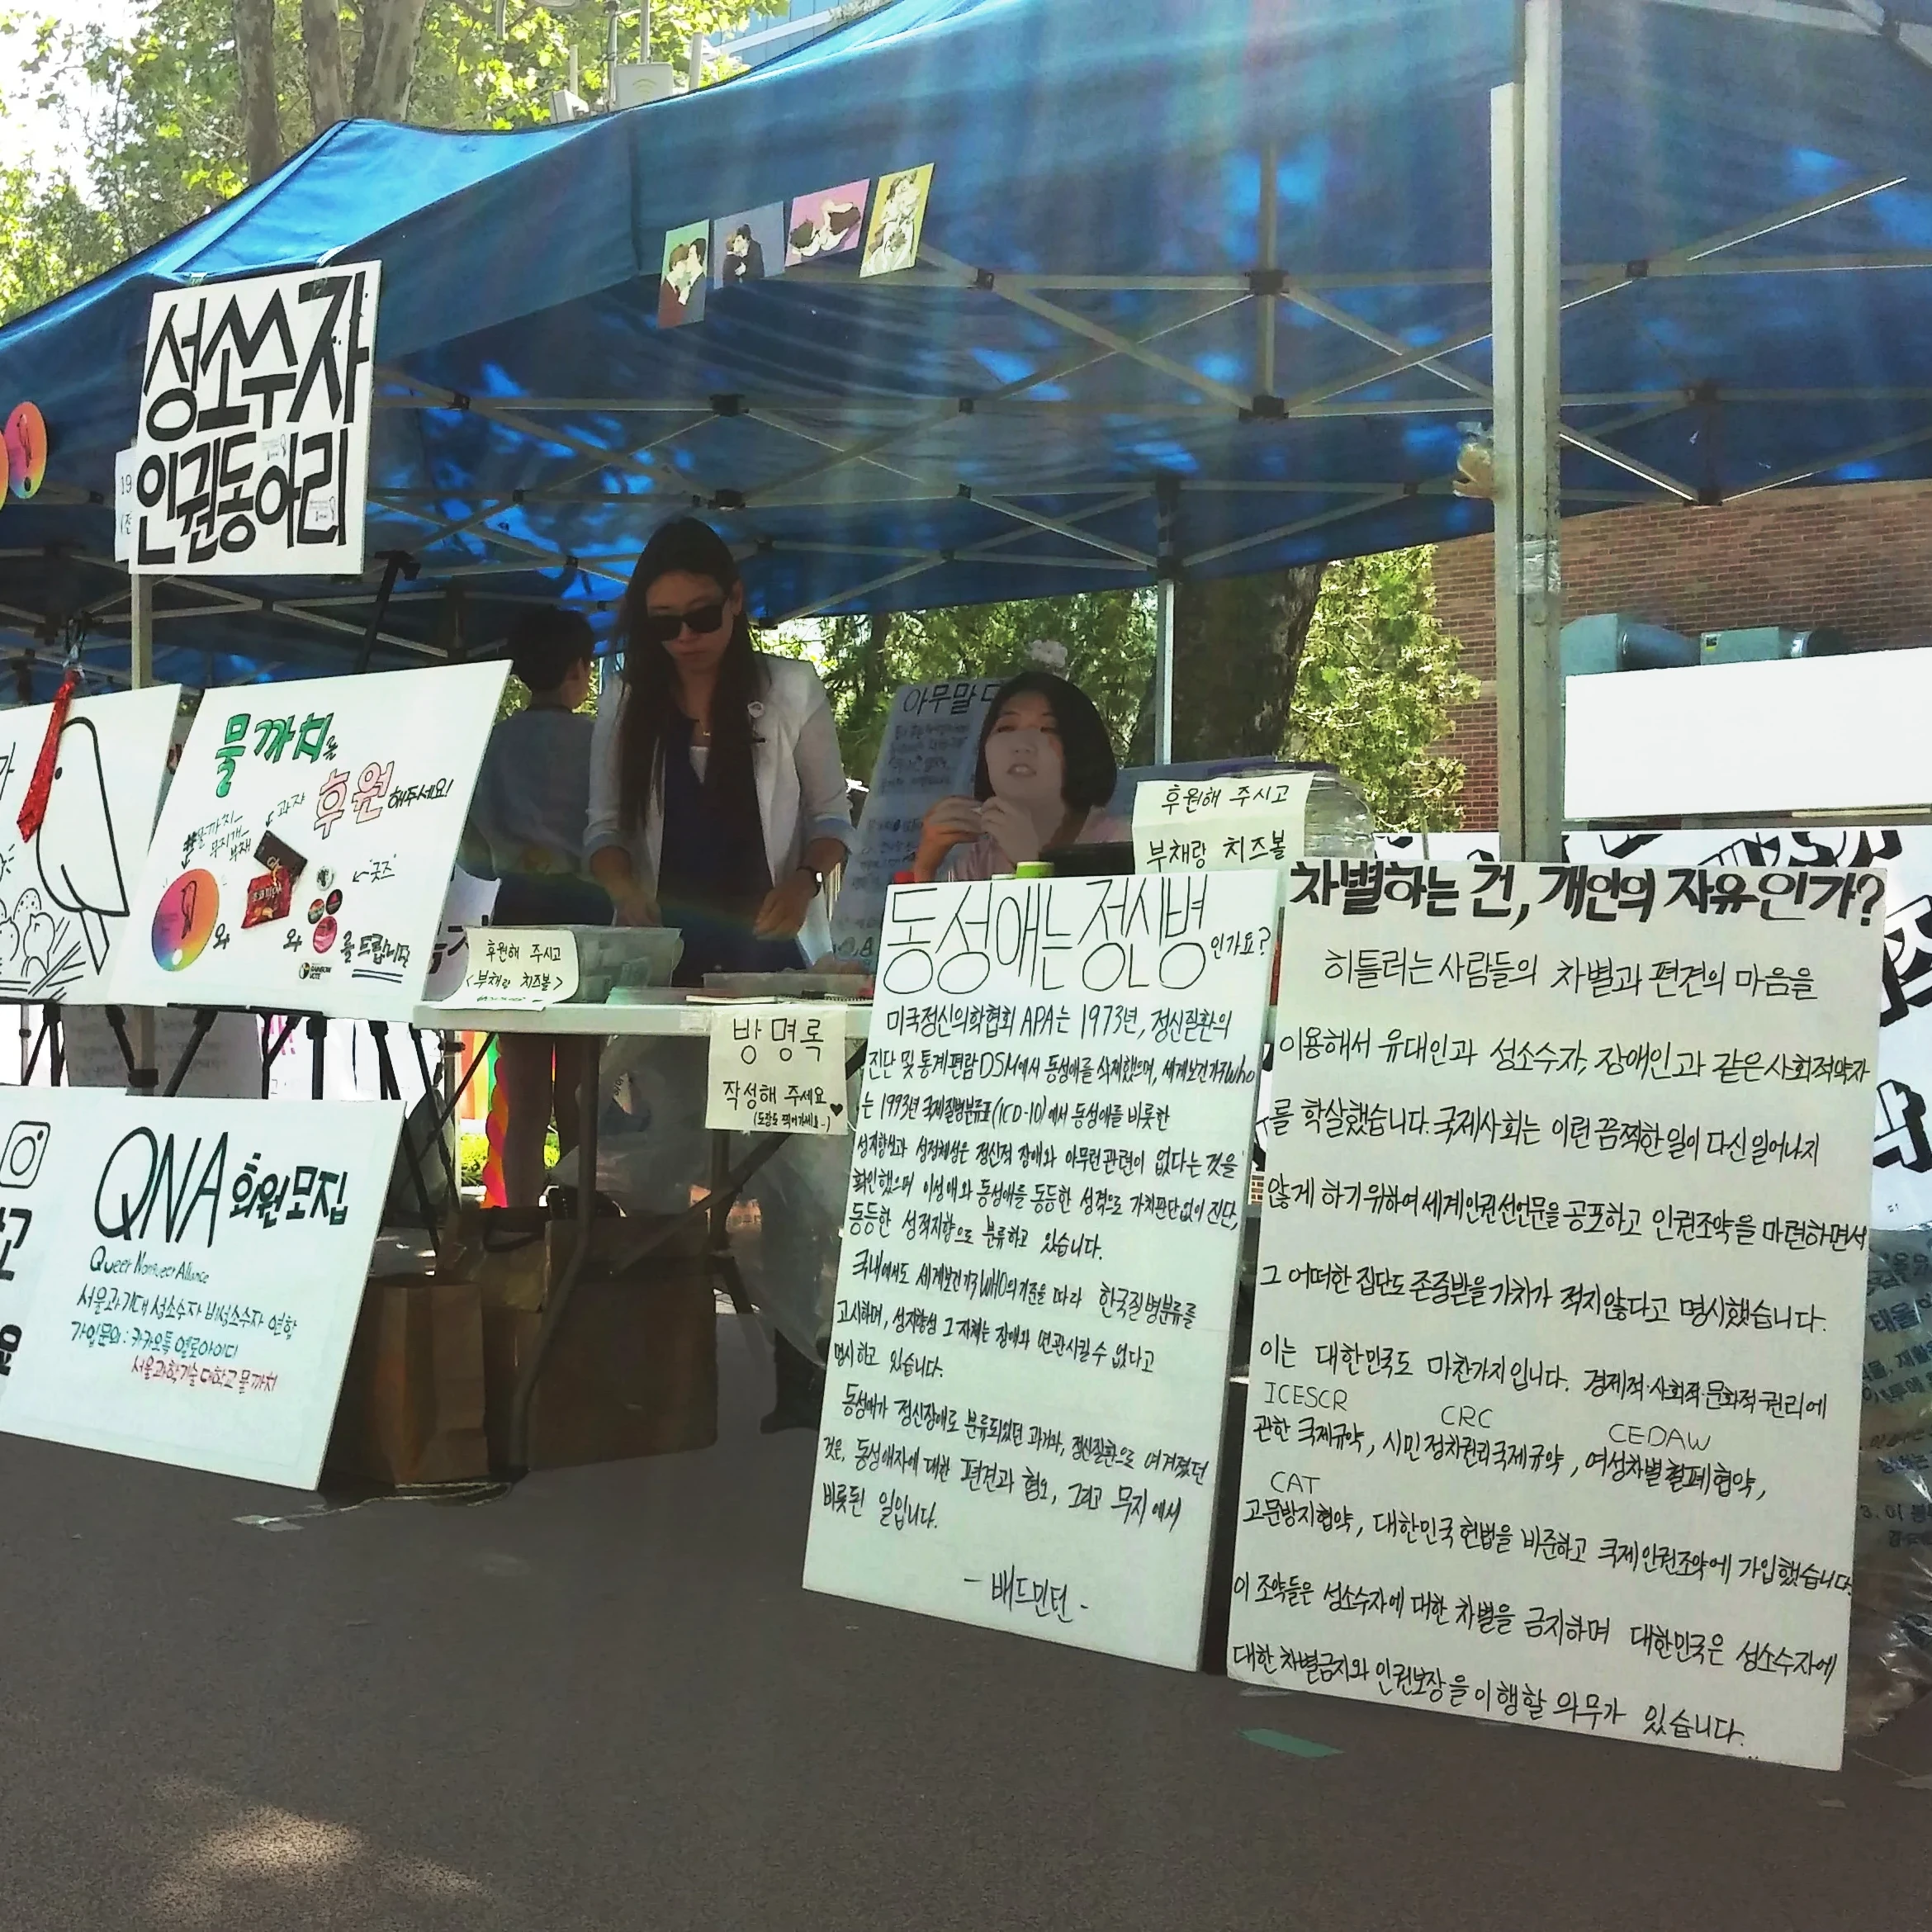 성소수자
인권동아리
물까치를
후원해주세요!
물까치
무지개
부채
과자
"굿즈"
와
와
를 드립니다
후원해 주시고
<부채랑 치즈볼>
방명록
작성해 주세요 ♥
아무말
후원해 주시고
부채랑 치즈볼
QNA 회원모집
Queer Nonqueer Alliance
서울과기대 성소수자 비성소수자 연합
가입문의: 카카오톡 옐로아이디
서울과학기술대학교 물까치
동성애는 정신병인가요?
미국정신의학협회 APA는 1973년, 정신질환의
진단 및 통계 편람 DSM에서 동성애를 삭제했으며, 세계보건기구 WHO
는 1993년 국제질병분류표(ICD-10)에서 동성애를 비롯한
성지향성과 성정체성은 정신적 장애와 아무런 관련이 없다는 것을
확인했으며 이성애와 동성애를 동등한 성격으로 가치판단없이 진단,
동등한 성적지향으로 분류하고 있습니다.
국내에서도 세계보건기구 WHO의 기준을 따라 한국질병분류를
고시하며, 성지향성 그 자체는 장애와 연관시킬 수 없다고
명시하고 있습니다.
동성애가 정신장애로 분류되었던 과거나, 정신질환으로 여겨졌던
것은, 동성애자에 대한 편견과 혐오, 그리고 무지에서
비롯된 일입니다.
- 배드민턴 -
차별하는 건, 개인의 자유인가?
히틀러는 사람들의 차별과 편견의 마음을
이용해서 유대인과 성소수자, 장애인과 같은 사회적약자
를 학살했습니다. 국제사회는 이런 끔찍한 일이 다신 일어나지
않게 하기 위하여 세계인권선언문을 공포하고 인권조약을 마련하면서
그 어떠한 집단도 존중받을 가치가 적지않다고 명시했습니다.
이는 대한민국도 마찬가지입니다. 경제적·사회적·문화적 권리에
ICESCR CRC CEDAW
관한 국제규약, 시민정치권리국제규약, 여성차별철폐협약,
CAT
고문방지협약, 대한민국 헌법을 비준하고 국제인권조약에 가입했습니다.
이 조약들은 성소수자에 대한 차별을 금지하며 대한민국은 성소수자에
대한 차별금지와 인권보장을 이행할 의무가 있습니다.